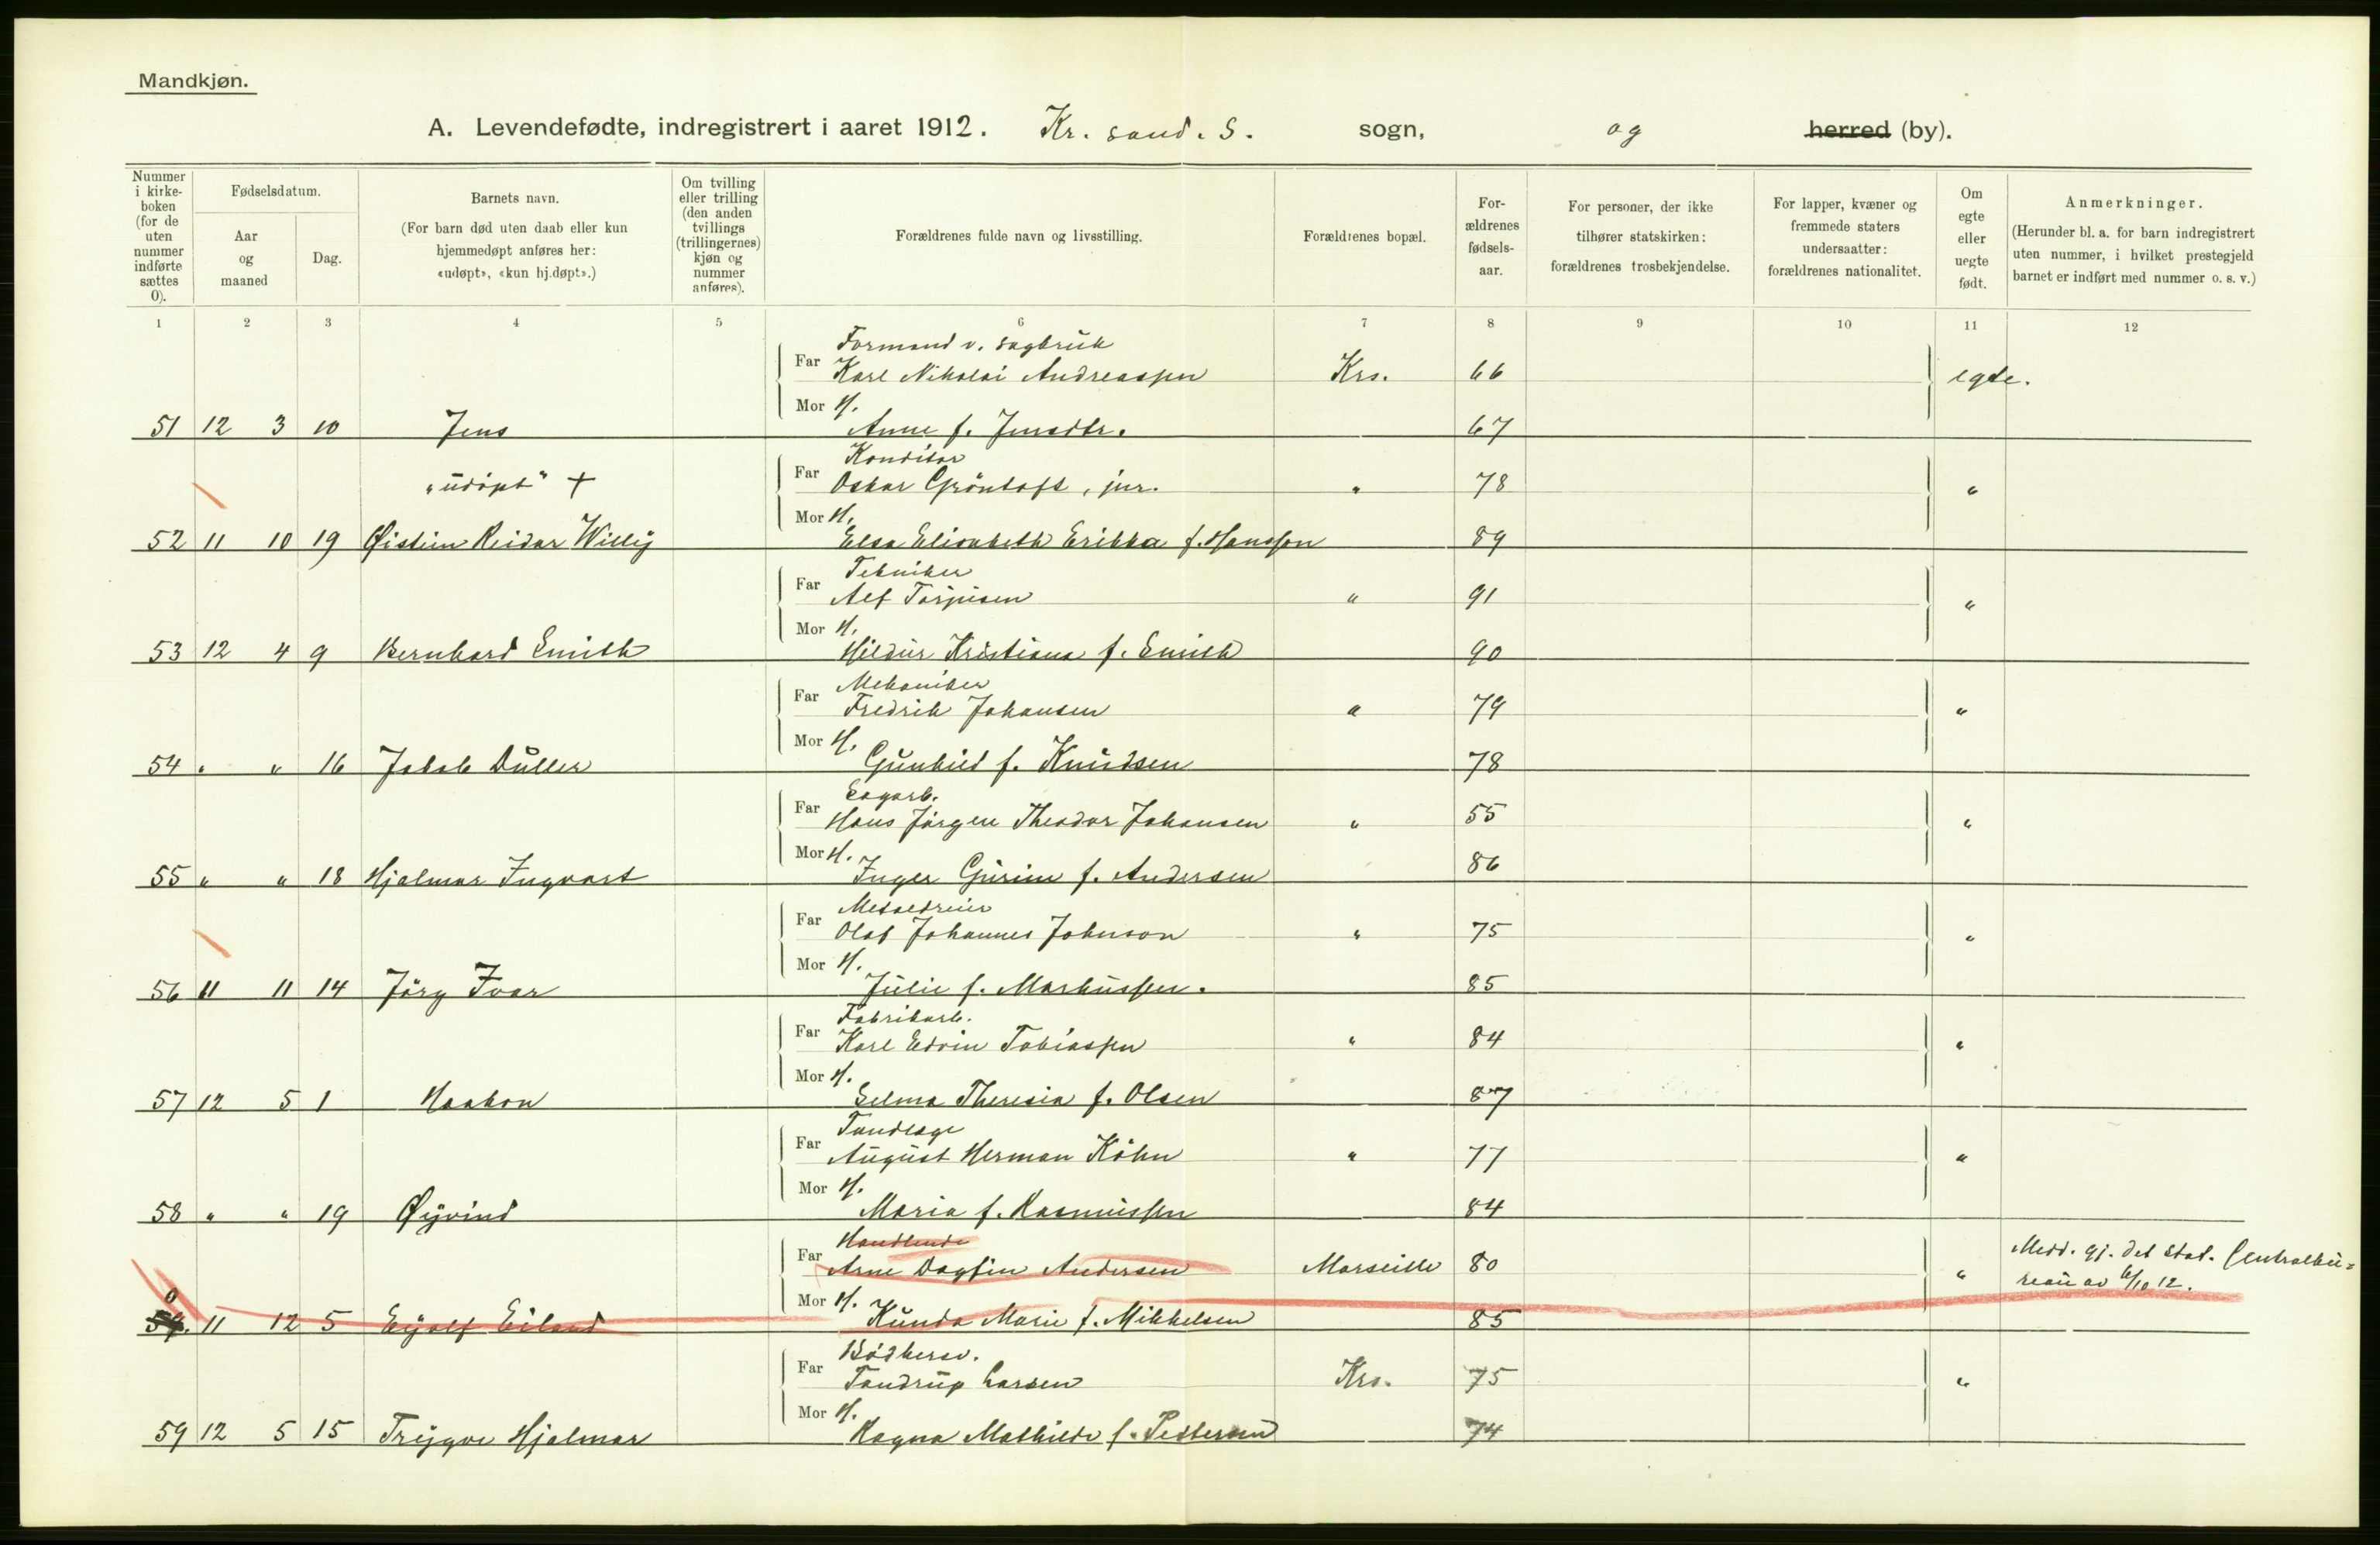 Mandkjøn.
A. Levendefødte, indregistrert i aaret 1912. Kr. sand. S. sogn, og herred (by).
Nummer i kirkeboken (for de uten nummer indførte sættes 0).
Fødselsdatum.
Aar og maaned
Dag.
Barnets navn.
(For barn død uten daab eller kun hjemmedøpt anføres her: «udøpt», «kun hj.døpt».)
Om tvilling eller trilling (den anden tvillings (trillingernes) kjøn og nummer anføres).
Forældrenes fulde navn og livsstilling.
Forældrenes bopæl.
Forældrenes fødselsaar.
For personer, der ikke tilhører statskirken: forældrenes trosbekjendelse.
For lapper, kvæner og fremmede staters undersaatter: forældrenes nationalitet.
Om egte eller uegte født.
Anmerkninger.
(Herunder bl. a. for barn indregistrert uten nummer, i hvilket prestegjeld barnet er indført med nummer o. s. v.)
1 2 3 4 5 6 7 8 9 10 11 12
Formand v. sagbruk
Far Karl Nikolai Andreassen Krs. 66 egte.
Mor H.
51 12 3 10 Jens Anne f. Jensdtr. 67
Konditor
"udöpt" + Far Oskar Gröntoft, jnr. " 78 "
Mor H.
52 11 10 19 Øistein Reidar Willy Elsa Elisabeth Erikka f. Hansson 89
Tekniker
Far Alf Torjusen " 91 "
Mor H.
53 12 4 9 Bernhard Smith Hildur Kristiana f. Smith 90
Mekaniker
Far Fredrik Johansen " 79 "
Mor H.
54 " " 16 Jakob Duller Gunhild f. Knudsen 78
Sagarb.
Far Hans Jörgen Theodor Johansen " 55 "
Mor H. 86
55 " " 18 Hjalmar Ingvart Inger Gurine f. Andersen
Metaldreier
Far Olaf Johannes Johnson " 75 "
Mor H.
56 11 11 14 Jörg Ivar Julie f. Markussen. 85
Fabrikarb.
Far Karl Edvin Tobiassen " 84 "
Mor H.
57 12 5 1 Haakon Selma Theresia f. Olsen 87
Tandlæge
Far August Herman Köhn " 77 "
Mor H.
58 " " 19 Øyvind Maria f. Rasmussen 84
Handlende
Far Arne Dagfin Andersen Marseille 80 " Medd. gj. det stat. Centralbu=
reau av 6/10 12.
Mor H.
0
59. 11 12 5 Eyolf Eiland Kunda Marie f. Mikkelsen 85
Bödkersv.
Far Tandrup Larsen Krs. 75 "
Mor H.
59 12 5 15 Trygve Hjalmar Ragna Mathilde f. Pettersen 74